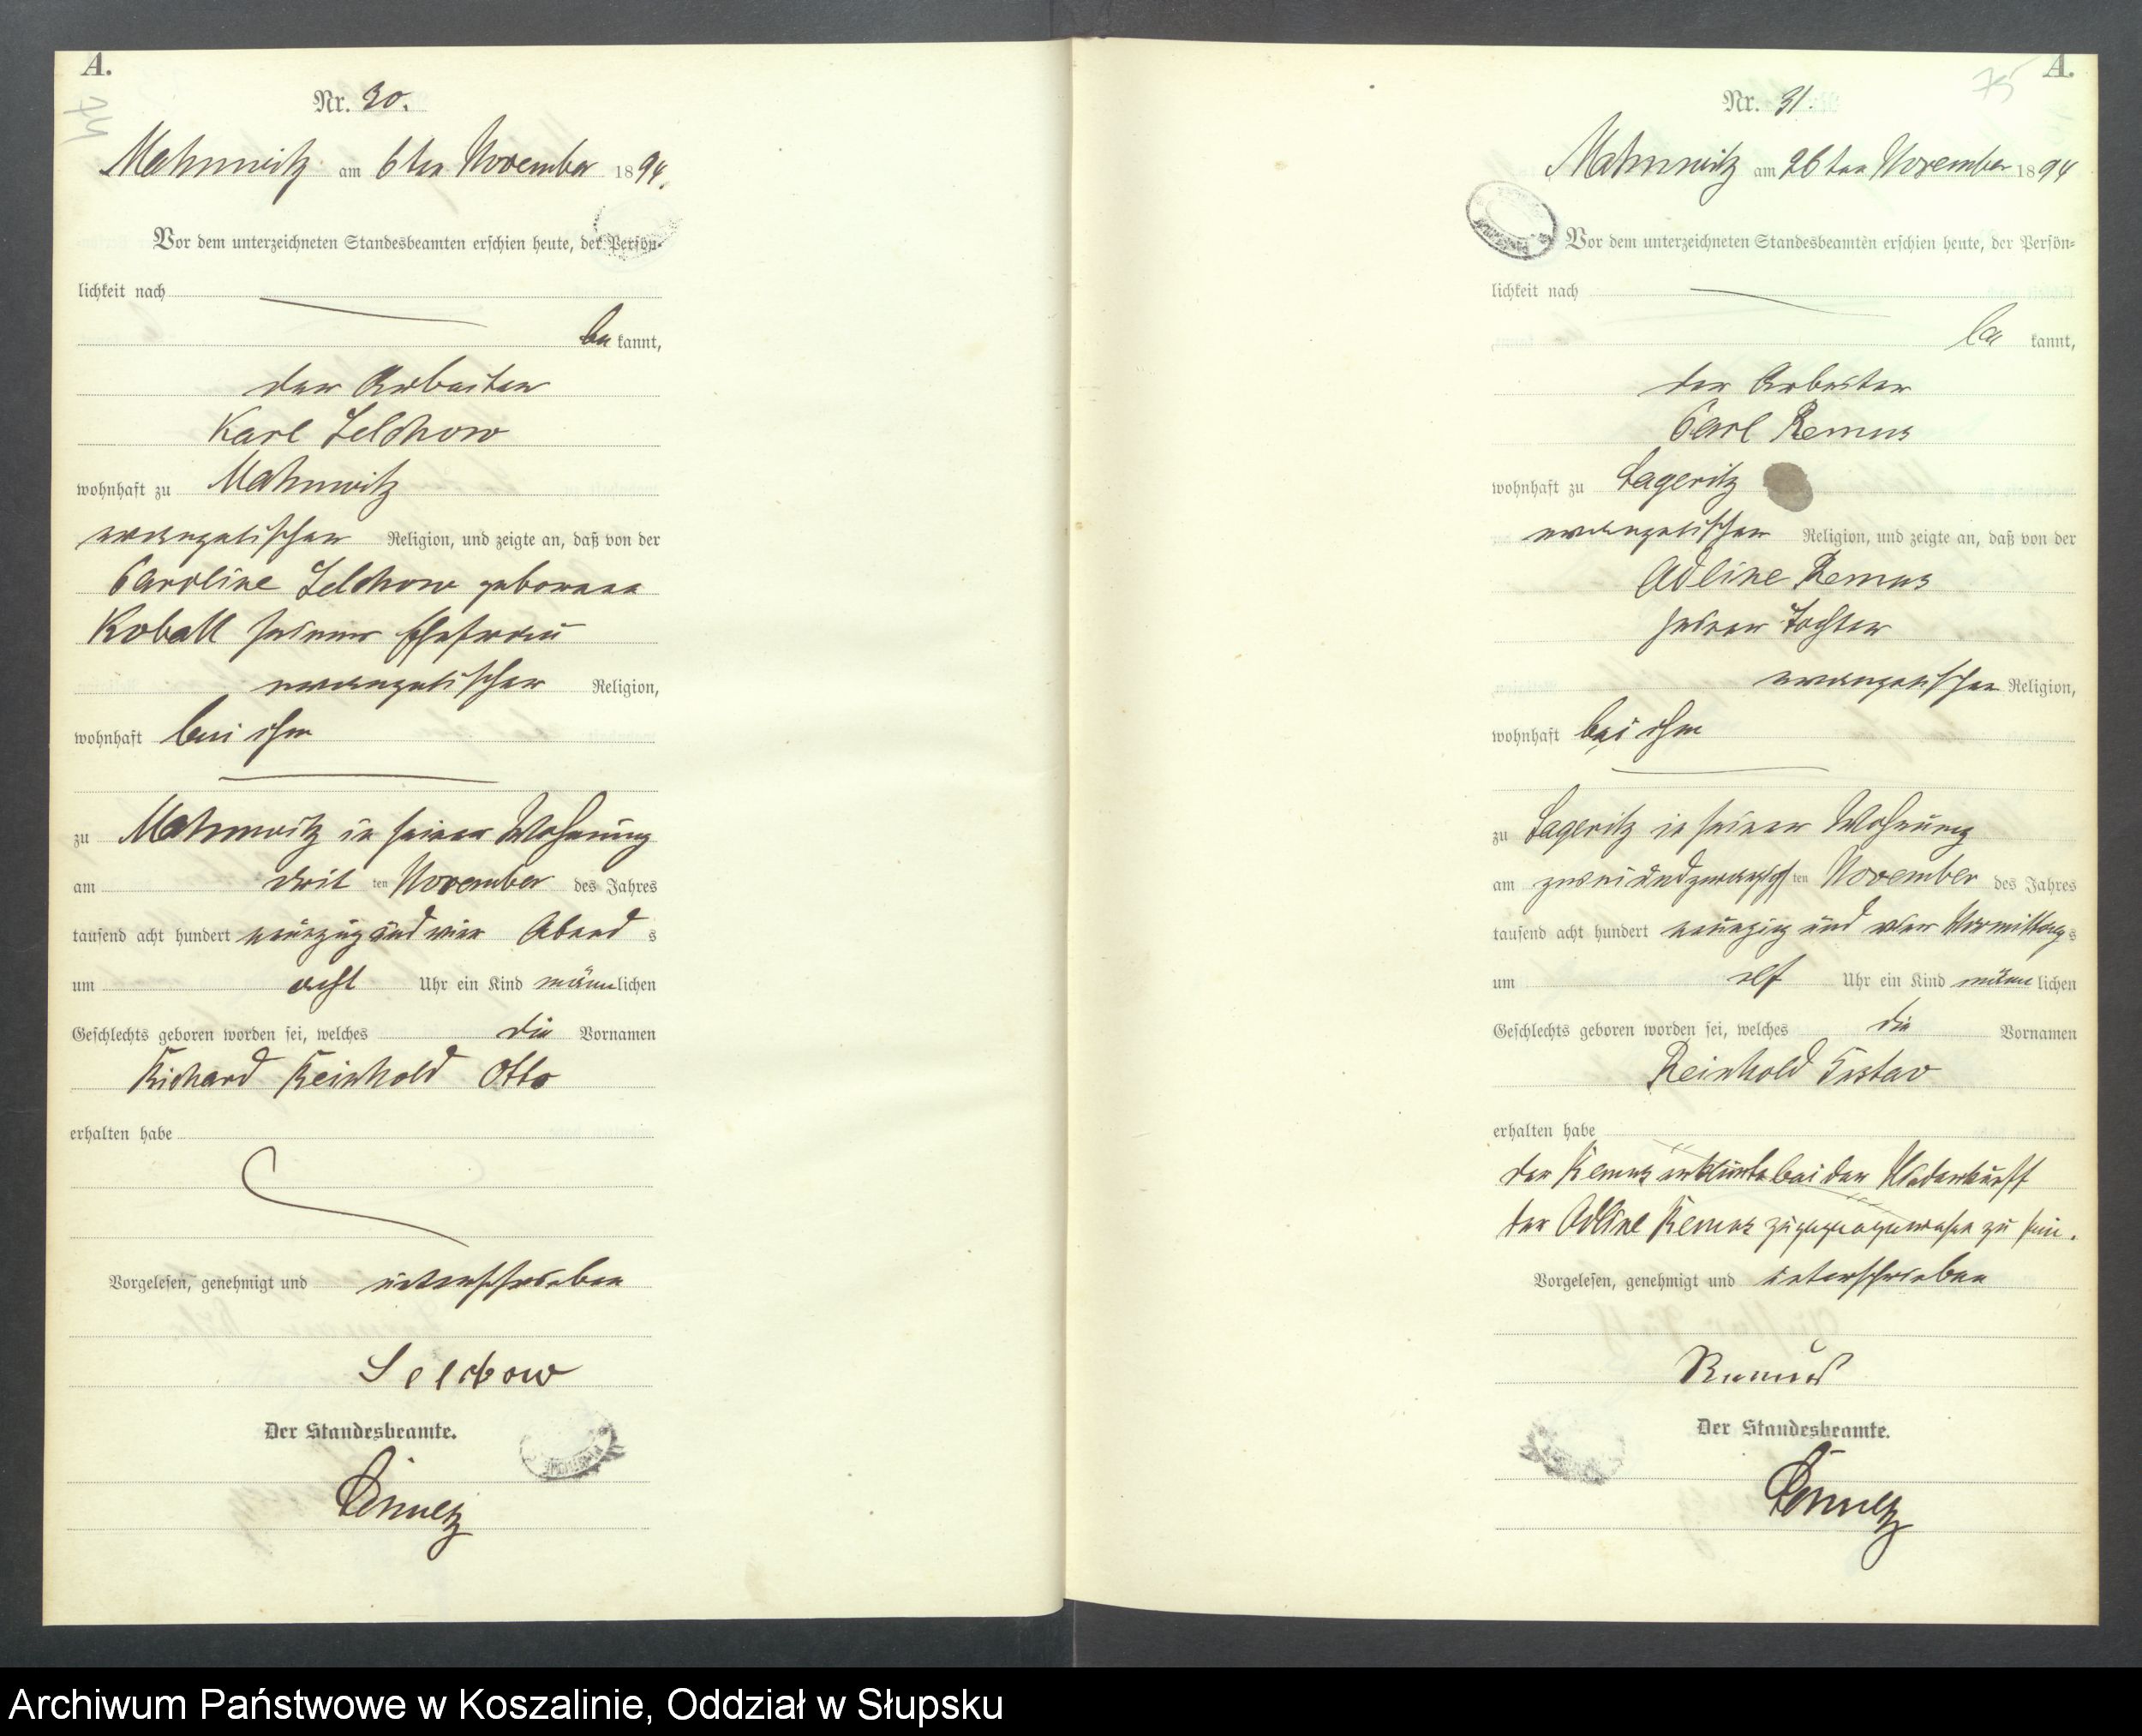 A.
74
Nr. 30.
Mahnwitz am 6ten November 1894.
Vor dem unterzeichneten Standesbeamten erschien heute, der Persön-
lichkeit nach
be kannt,
der Arbeiter
Karl Selchow
wohnhaft zu Mahnwitz
evangelischer Religion, und zeigte an, daß von der
Caroline Selchow geborene
Koball seiner Ehefrau
evangelischer Religion,
wohnhaft bei ihm
zu Mahnwitz in seiner Wohnung
am drit ten November des Jahres
tausend acht hundert neunzig und vier Abend s
um acht Uhr ein Kind männlichen
Geschlechts geboren worden sei, welches die Vornamen
Richard Reinhold Otto
erhalten habe
Vorgelesen, genehmigt und unterschrieben
Selchow
Der Standesbeamte.
A.
75
Nr. 31.
Mahnwitz am 26ten November 1894
Vor dem unterzeichneten Standesbeamten erschien heute, der Persön-
lichkeit nach
be kannt,
der Arbeiter
Carl Remus
wohnhaft zu Lageritz
evangelischer Religion, und zeigte an, daß von der
Adline Remus
seiner Tochter
evangelischer Religion,
wohnhaft bei ihm
zu Lageritz in seiner Wohnung
am zweiundzwanzigsten November des Jahres
tausend acht hundert neunzig und vier Vormittags
um elf Uhr ein Kind männ lichen
Geschlechts geboren worden sei, welches die Vornamen
Reinhold Gustav
erhalten habe
der Remus erklärte bei der Niederkunft
der Adline Remus zugegen gewesen zu sein.
Vorgelesen, genehmigt und unterschrieben
Remus
Der Standesbeamte.
Archiwum Państwowe w Koszalinie, Oddział w Słupsku